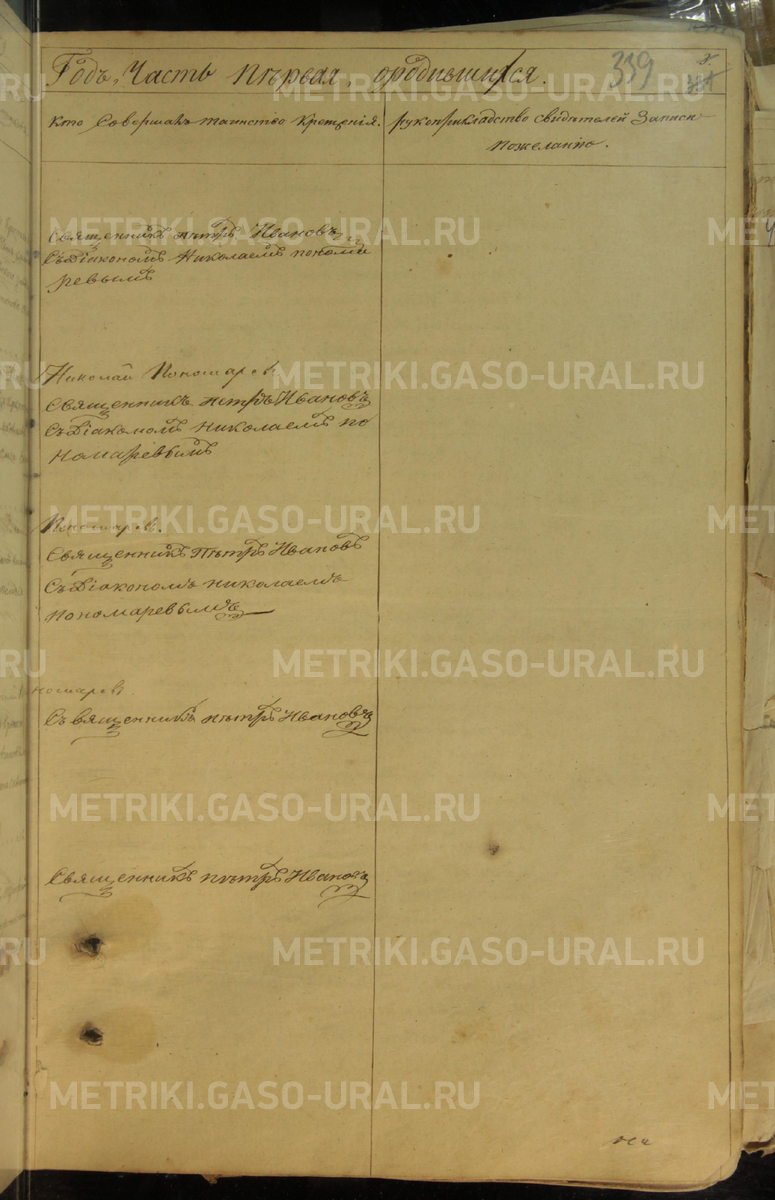 Годъ, Часть Первая, ородившихся.
339
Кто Совершалъ таинство Крещенія.
рукоприкладство свидѣтелей Записи
пожеланію.
Священникъ петръ Ивановъ
Съ Діакономъ Николаемъ понома
ревымъ
Николай Пономаревъ
Священникъ петръ Ивановъ
Съ Діакономъ Николаемъ по
номаревымъ
Пономаревъ.
Священникъ Петръ Ивановъ
Съ Діакономъ Николаемъ
пономаревымъ
номаревъ.
Священникъ петръ Ивановъ
Священникъ петръ Ивановъ
METRIKI.GASO-URAL.RU